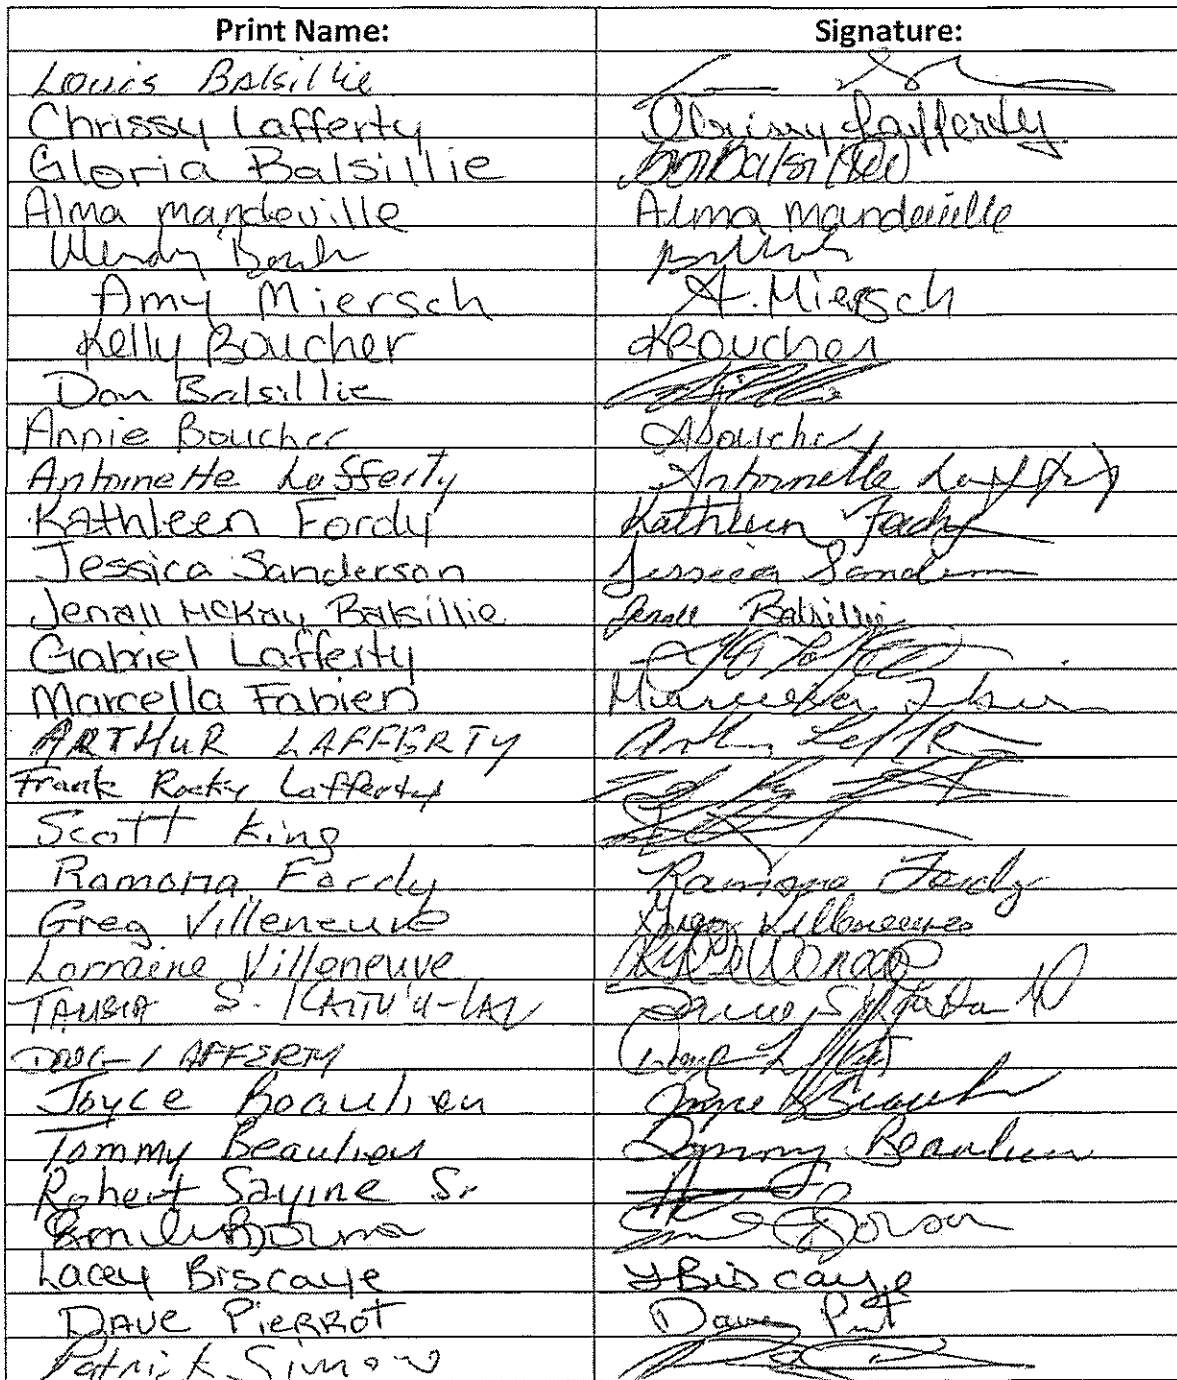 Print Name: Signature:
Louis Balsillie
Chrissy Lafferty Chrissy Lafferty
Gloria Balsillie Balsillie
Alma mandeville Alma mandeville
Wendy
Amy Miersch A. Miersch
Kelly Boucher KBoucher
Don Balsillie
Annie Boucher ABoucher
Antoinette Lafferty Antoinette Lafferty
Kathleen Fordy Kathleen Fordy
Jessica Sanderson Jessica Sanderson
Jenall McKay Balsillie Jenall Balsillie
Gabriel Lafferty
Marcella Fabien Marcella Fabien
ARTHUR LAFFERTY
Frank Rocky Lafferty
Scott King
Ramona Fordy Ramona Fordy
Greg Villeneuve Greg Villeneuve
Lorraine Villeneuve
S.
DOUG LAFFERTY
Joyce Beaulieu Joyce Beaulieu
Tommy Beaulieu Tommy Beaulieu
Robert Sayine Sr
Lacey Biscaye LBiscaye
DAVE PIERROT Dave
Patrick Simon